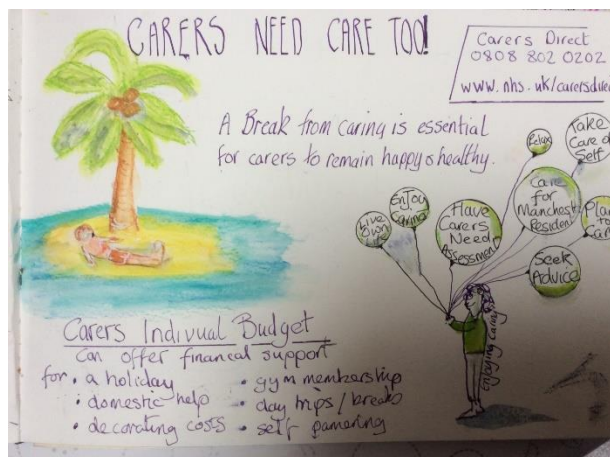 CARERS NEED CARE TOO!
Carers Direct
0808 802 0202
www.nhs.uk/carersdire
A Break from caring is essential
for carers to remain happy & healthy.
Relax
Take
Care of
Self
Enjoy
Caring
Live
Own
Life
Have
Carers
Need
Assessment
Care
for
Manchester
Resident
Plan
to
Car
Seek
Advice
Enjoying caring
Carers Indivual Budget
Can offer financal support
for • a holiday
• domestic help
• decorating costs
• gym membership
• day trips / breaks
• self pamering